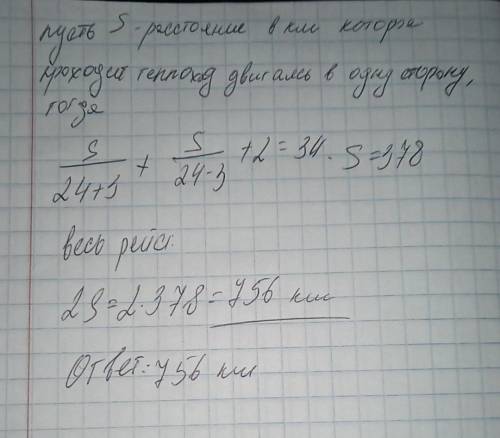 пусть S - расстояние в км которое
проходит теплоход двигаясь в одну сторону,
тогда
S/24+3 + S/24-3 +2 = 34. S=378
весь рейс.
2S=2·378=756 км
Ответ: 756 км